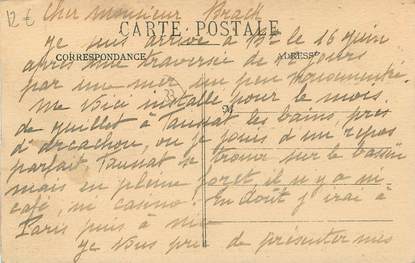 12€
Cher Monsieur Brack
CARTE POSTALE
Je suis arrivé à Bx le 16 juin
CORRESPONDANCE
ADRESSE
après une traversée de jours
par une mer un peu mouvementée.
33
Me voici installé pour le mois
M
de Juillet à Taussat les bains, près
d'arcachon, où je jouis d'un repos
parfait Taussat se trouve sur le bassin
mais en pleine foret il n y a ni
café, ni casino. En Août j'irai à
Paris puis à
Je vous prie de présenter mes